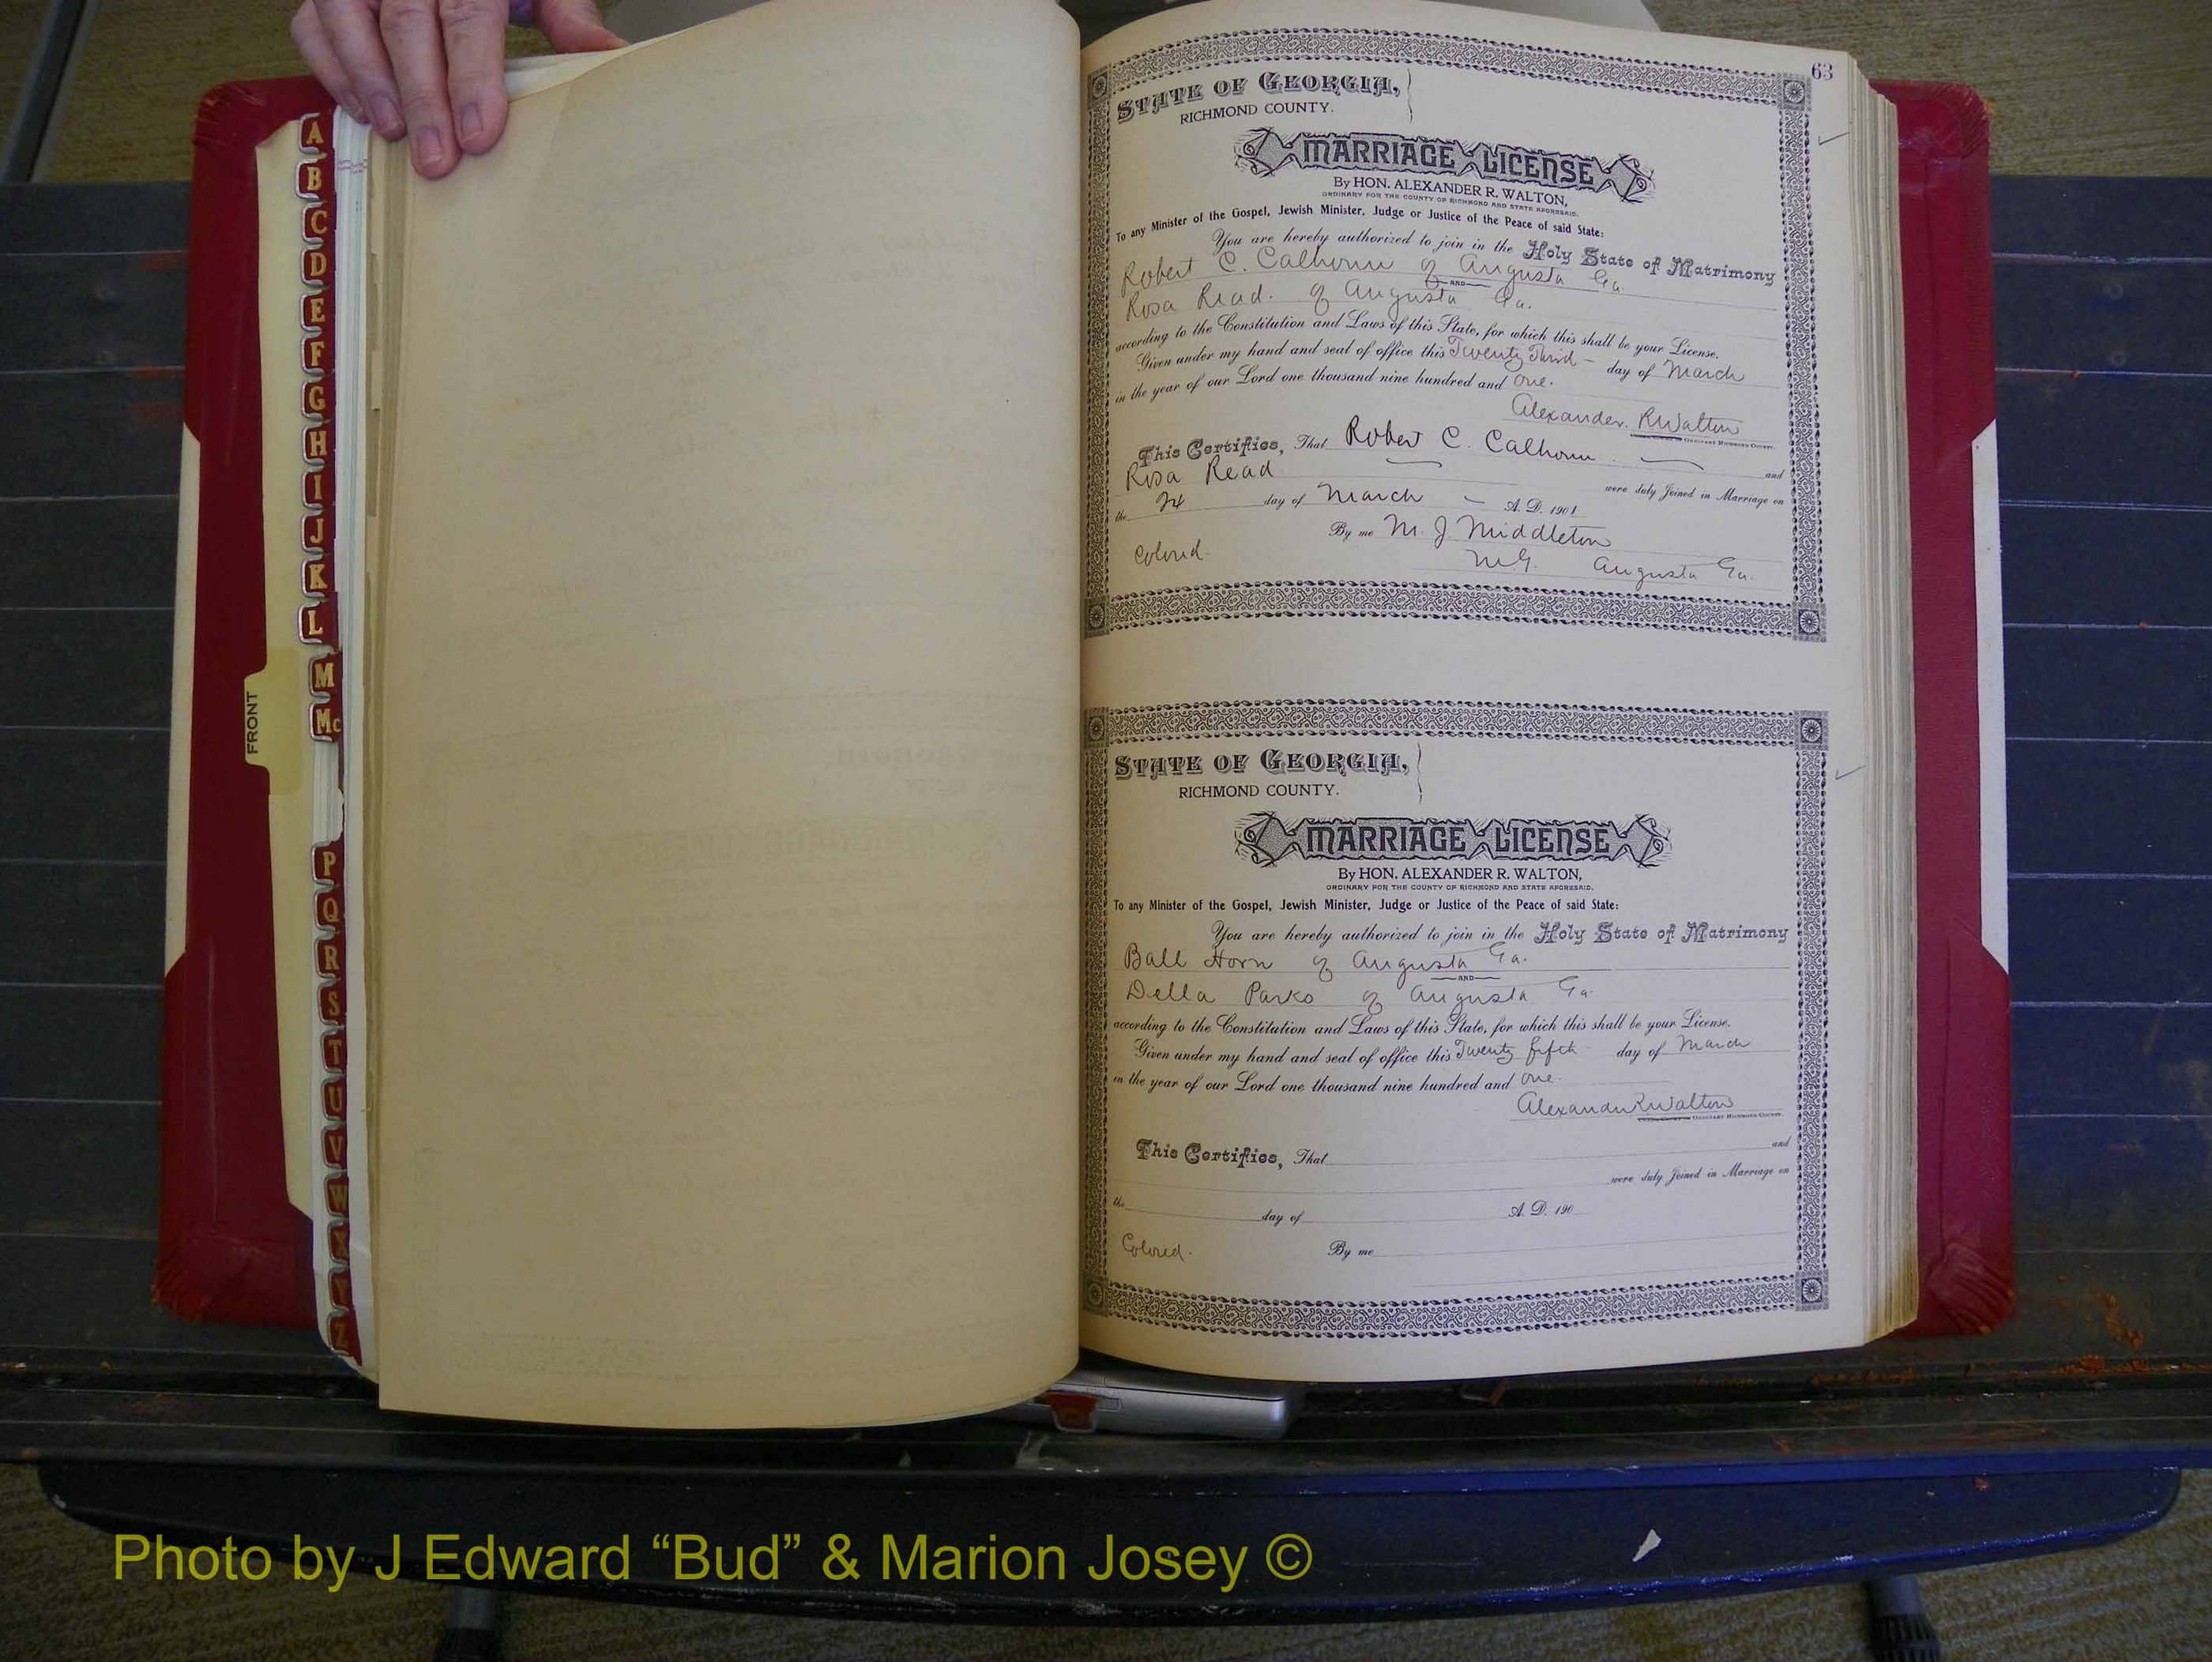 A
B
C
D
E
F
G
H
I
J
K
L
M
Mc
P
Q
R
S
T
U
V
W
X
Y
Z
FRONT
63
STATE OF GEORGIA,
RICHMOND COUNTY.
MARRIAGE LICENSE
By HON. ALEXANDER R. WALTON,
ORDINARY FOR THE COUNTY OF RICHMOND AND STATE AFORESAID.
To any Minister of the Gospel, Jewish Minister, Judge or Justice of the Peace of said State:
You are hereby authorized to join in the Holy State of Matrimony
Robert C. Calhoun of Augusta Ga.
AND
Rosa Read. of Augusta Ga.
according to the Constitution and Laws of this State, for which this shall be your License.
Given under my hand and seal of office this Twenty Third - day of March
in the year of our Lord one thousand nine hundred and One.
Alexander. R Walton
ORDINARY RICHMOND COUNTY.
This Certifies, That Robert C. Calhoun and
Rosa Read were duly Joined in Marriage on
the 24 day of March A. D. 1901
By me M. J. Middleton
Colored. M.G. Augusta Ga.
STATE OF GEORGIA,
RICHMOND COUNTY.
MARRIAGE LICENSE
By HON. ALEXANDER R. WALTON,
ORDINARY FOR THE COUNTY OF RICHMOND AND STATE AFORESAID.
To any Minister of the Gospel, Jewish Minister, Judge or Justice of the Peace of said State:
You are hereby authorized to join in the Holy State of Matrimony
Ball Horn of Augusta Ga.
AND
Della Parks of Augusta Ga.
according to the Constitution and Laws of this State, for which this shall be your License.
Given under my hand and seal of office this Twenty fifth day of March
in the year of our Lord one thousand nine hundred and One.
Alexander R Walton
ORDINARY RICHMOND COUNTY.
This Certifies, That and
were duly Joined in Marriage on
the day of A. D. 190
Colored. By me
Photo by J Edward “Bud” & Marion Josey ©